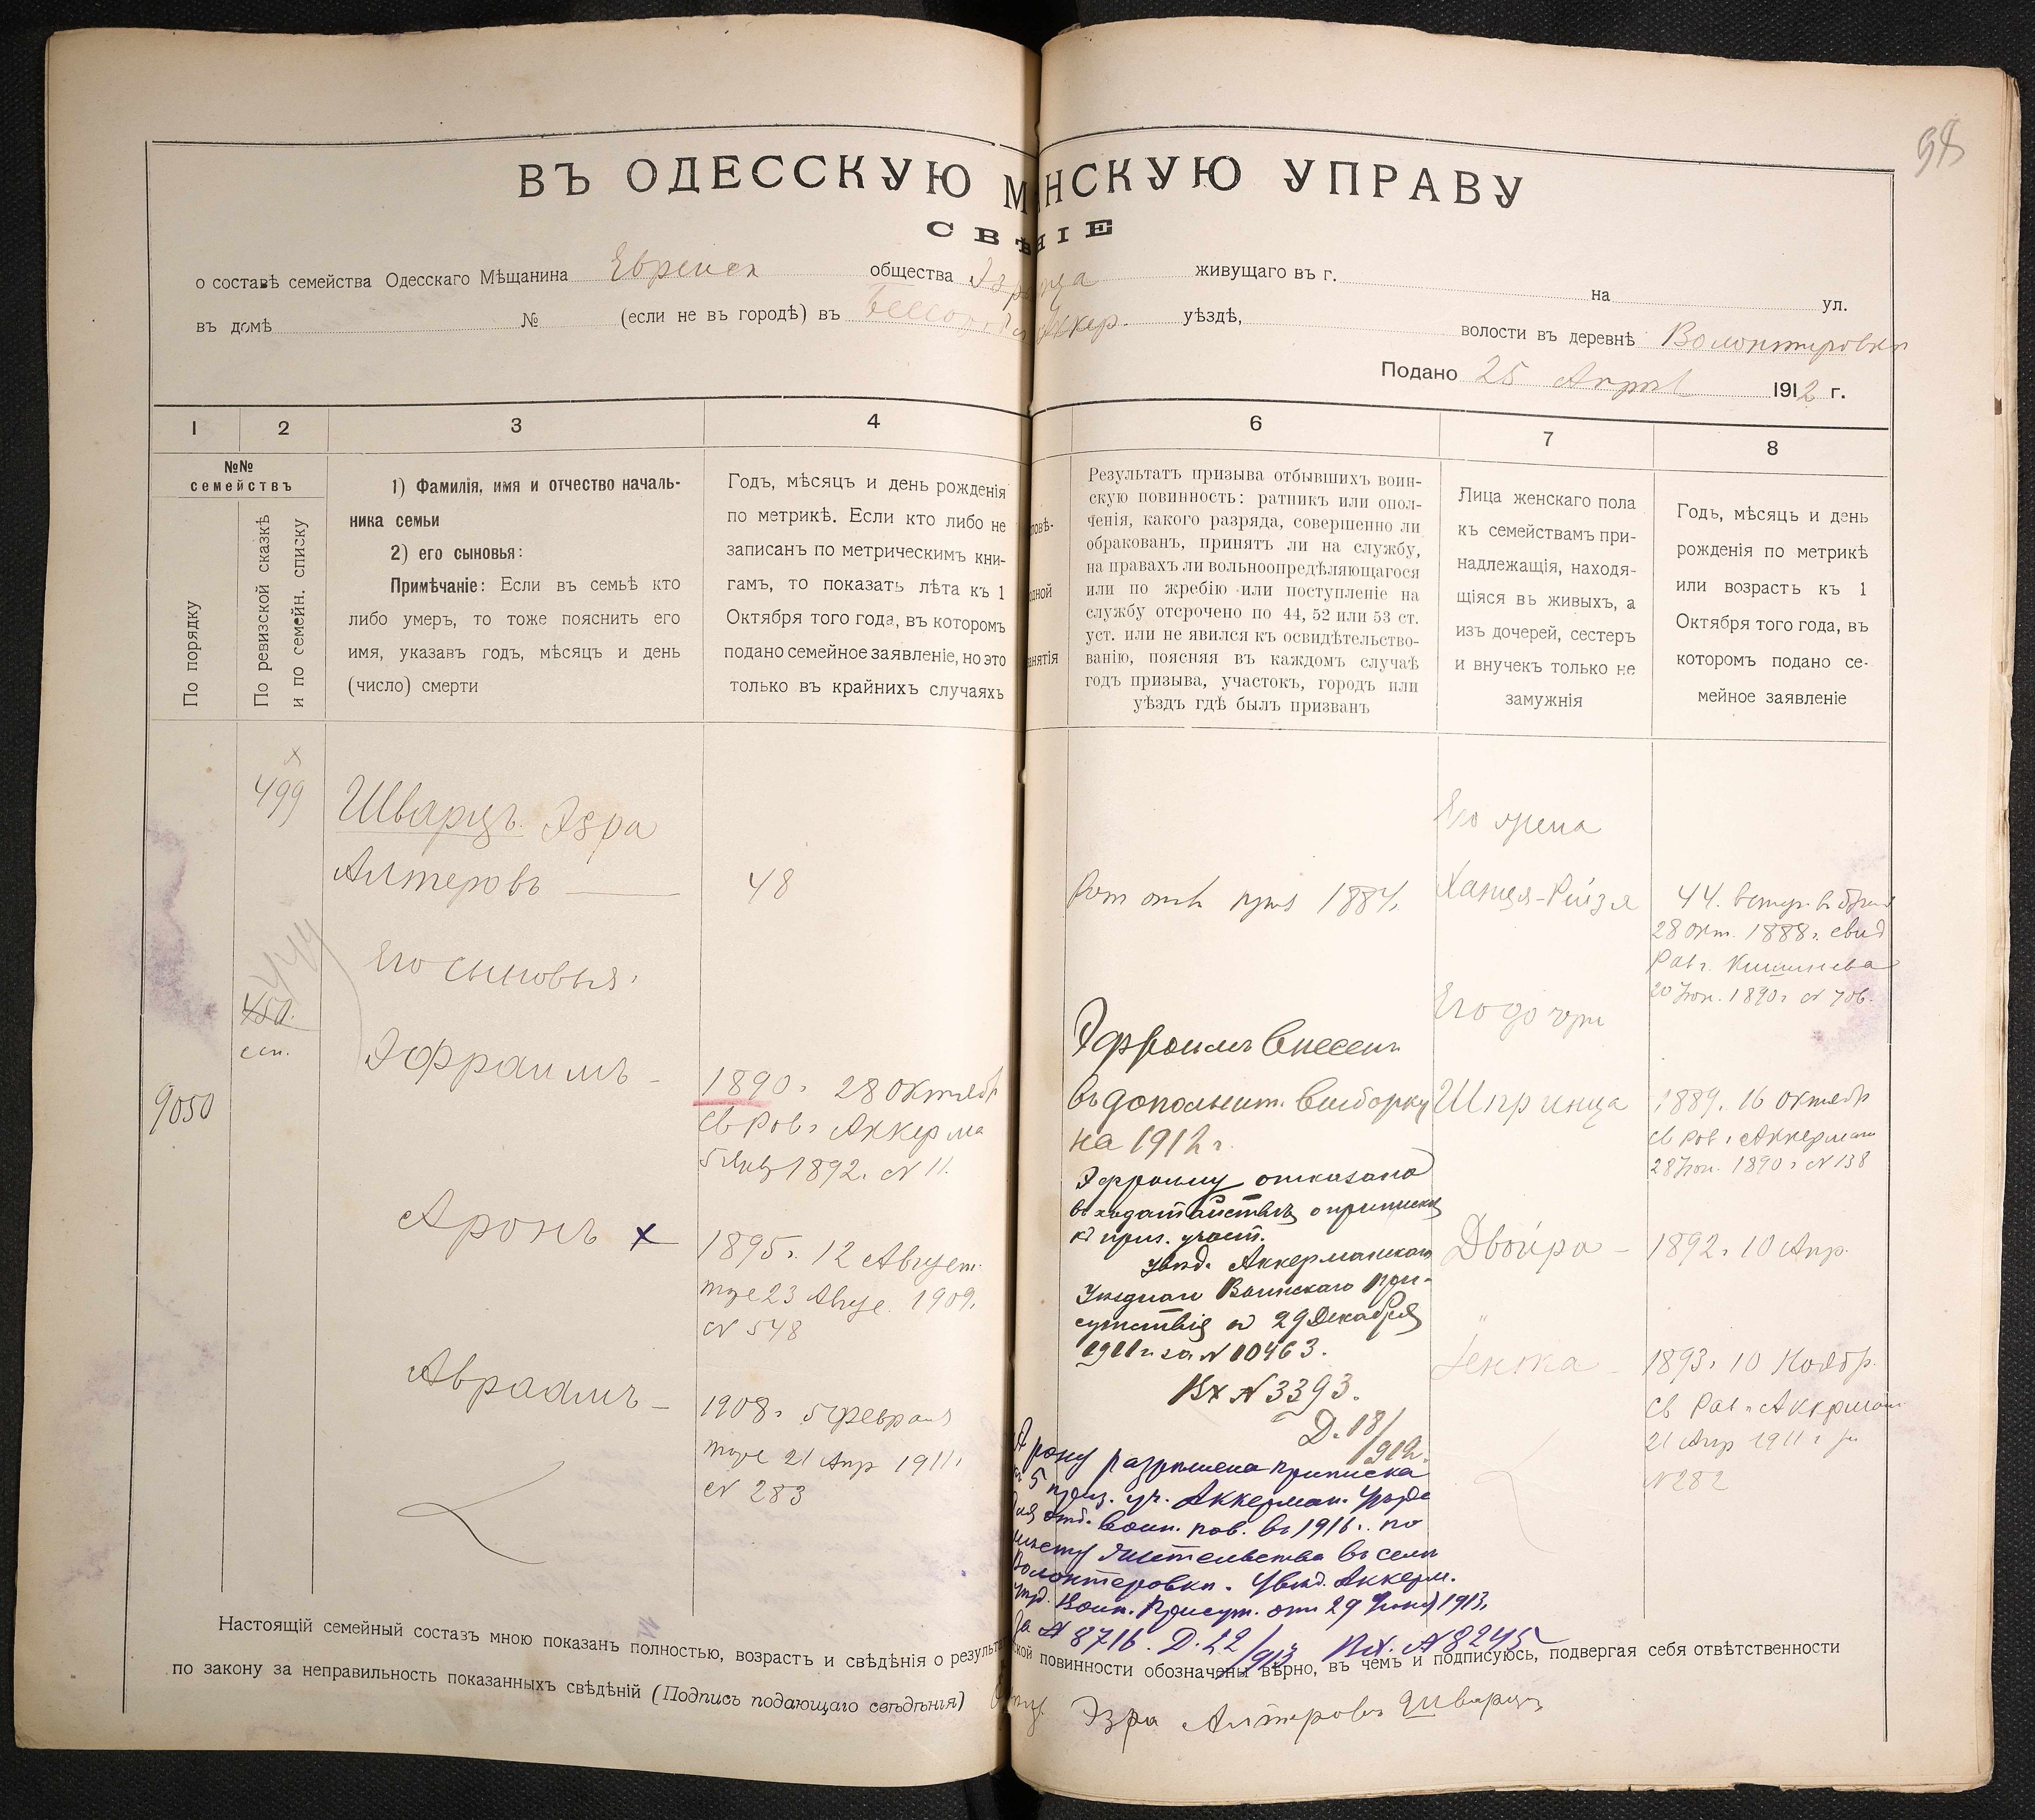 98
ВЪ ОДЕССКУЮ М НСКУЮ УПРАВУ
СВѢ НІЕ
о составѣ семейства Одесскаго Мѣщанина Евренск общества живущаго въ г. на ул.
въ домѣ № (если не въ городѣ) въ Аккер. уѣздѣ, волости въ деревнѣ Волонтеровкѣ
Подано 25 Апрѣл 1912 г.
1 2 3 4 6 7 8
№№ семействъ
По порядку
По ревизской сказкѣ
и по семейн. списку
1) Фамилія, имя и отчество началь-
ника семьи
2) его сыновья:
Примѣчаніе: Если въ семьѣ кто
либо умеръ, то тоже пояснить его
имя, указавъ годъ, мѣсяцъ и день
(число) смерти
Годъ, мѣсяцъ и день рожденія
по метрикѣ. Если кто либо не
записанъ по метрическимъ кни-
гамъ, то показать лѣта къ 1
Октября того года, въ которомъ
подано семейное заявленіе, но это
только въ крайнихъ случаяхъ
Результатъ призыва отбывшихъ воин-
скую повинность: ратникъ или опол-
ченія, какого разряда, совершенно ли
обракованъ, принятъ ли на службу,
на правахъ ли вольноопредѣляющагося
или по жребію или поступленіе на
службу отсрочено по 44, 52 или 53 ст.
уст. или не явился къ освидѣтельство-
ванію, поясняя въ каждомъ случаѣ
годъ призыва, участокъ, городъ или
уѣздъ гдѣ былъ призванъ
Лица женскаго пола
къ семействамъ при-
надлежащія, находя-
щіяся въ живыхъ, а
изъ дочерей, сестеръ
и внучекъ только не
замужнія
Годъ, мѣсяцъ и день
рожденія по метрикѣ
или возрастъ къ 1
Октября того года, въ
которомъ подано се-
мейное заявленіе
499
Шварцъ Эзра
Алтеровъ
48
1884.
Его жена
Ханця-Рейзя
44.
28 окт. 1888 г. свид
Рав г. Кишинева
20 Іюн. 1890 г. № 706.
Его сыновья:
450.
9050
Эфраимъ
1890 г. 28 Октябр
св Рав г Аккерма
1892. № 11.
Эфроимъ внесенъ
въ дополнит. выборку
на 1912 г.
Эфроиму отказано
въ ходатайствѣ о припискѣ
къ приз. участ.
Увѣд. Аккерманскаго
Уѣзднаго Воинскаго При-
сутствія от 29 Декабря
1911 г за № 10463.
Вх № 3393.
Д. 18/1912.
Его дочери
Шпринца
1889. 16 Октябр
св Рав г Аккерман
28 Іюн. 1890 г № 138
Аронъ х
1895 г. 12 Август.
тоже 23 Авгус. 1909.
№ 548
Двойра
1892 г. 10 Апр.
Генека
1893 г. 10 Ноябр.
св Рав г Аккерман
21 Апр 1911 г за
№ 282
Авраамъ
1908 г 5 Февраля
тоже 21 Апр 1911.
№ 283
Арону разрѣшена приписка
къ 5 приз. уч. Аккерман. Уѣзда
для отб. воин. пов. въ 1916 г. по
мѣсту жительства въ селѣ
Волонтеровкѣ. Увѣд. Аккерм.
уѣзд. Воин. Присут. отъ 29 Іюня 1913.
За № 8716. Д. 22/913 Вх. № 8245
Настоящій семейный составъ мною показанъ полностью, возрастъ и свѣдѣнія о результа ской повинности обозначены вѣрно, въ чемъ и подписуюсь, подвергая себя отвѣтственности
по закону за неправильность показанныхъ свѣдѣній (Подпись подающаго свѣдѣнія) Эзра Алтеровъ Шварцъ